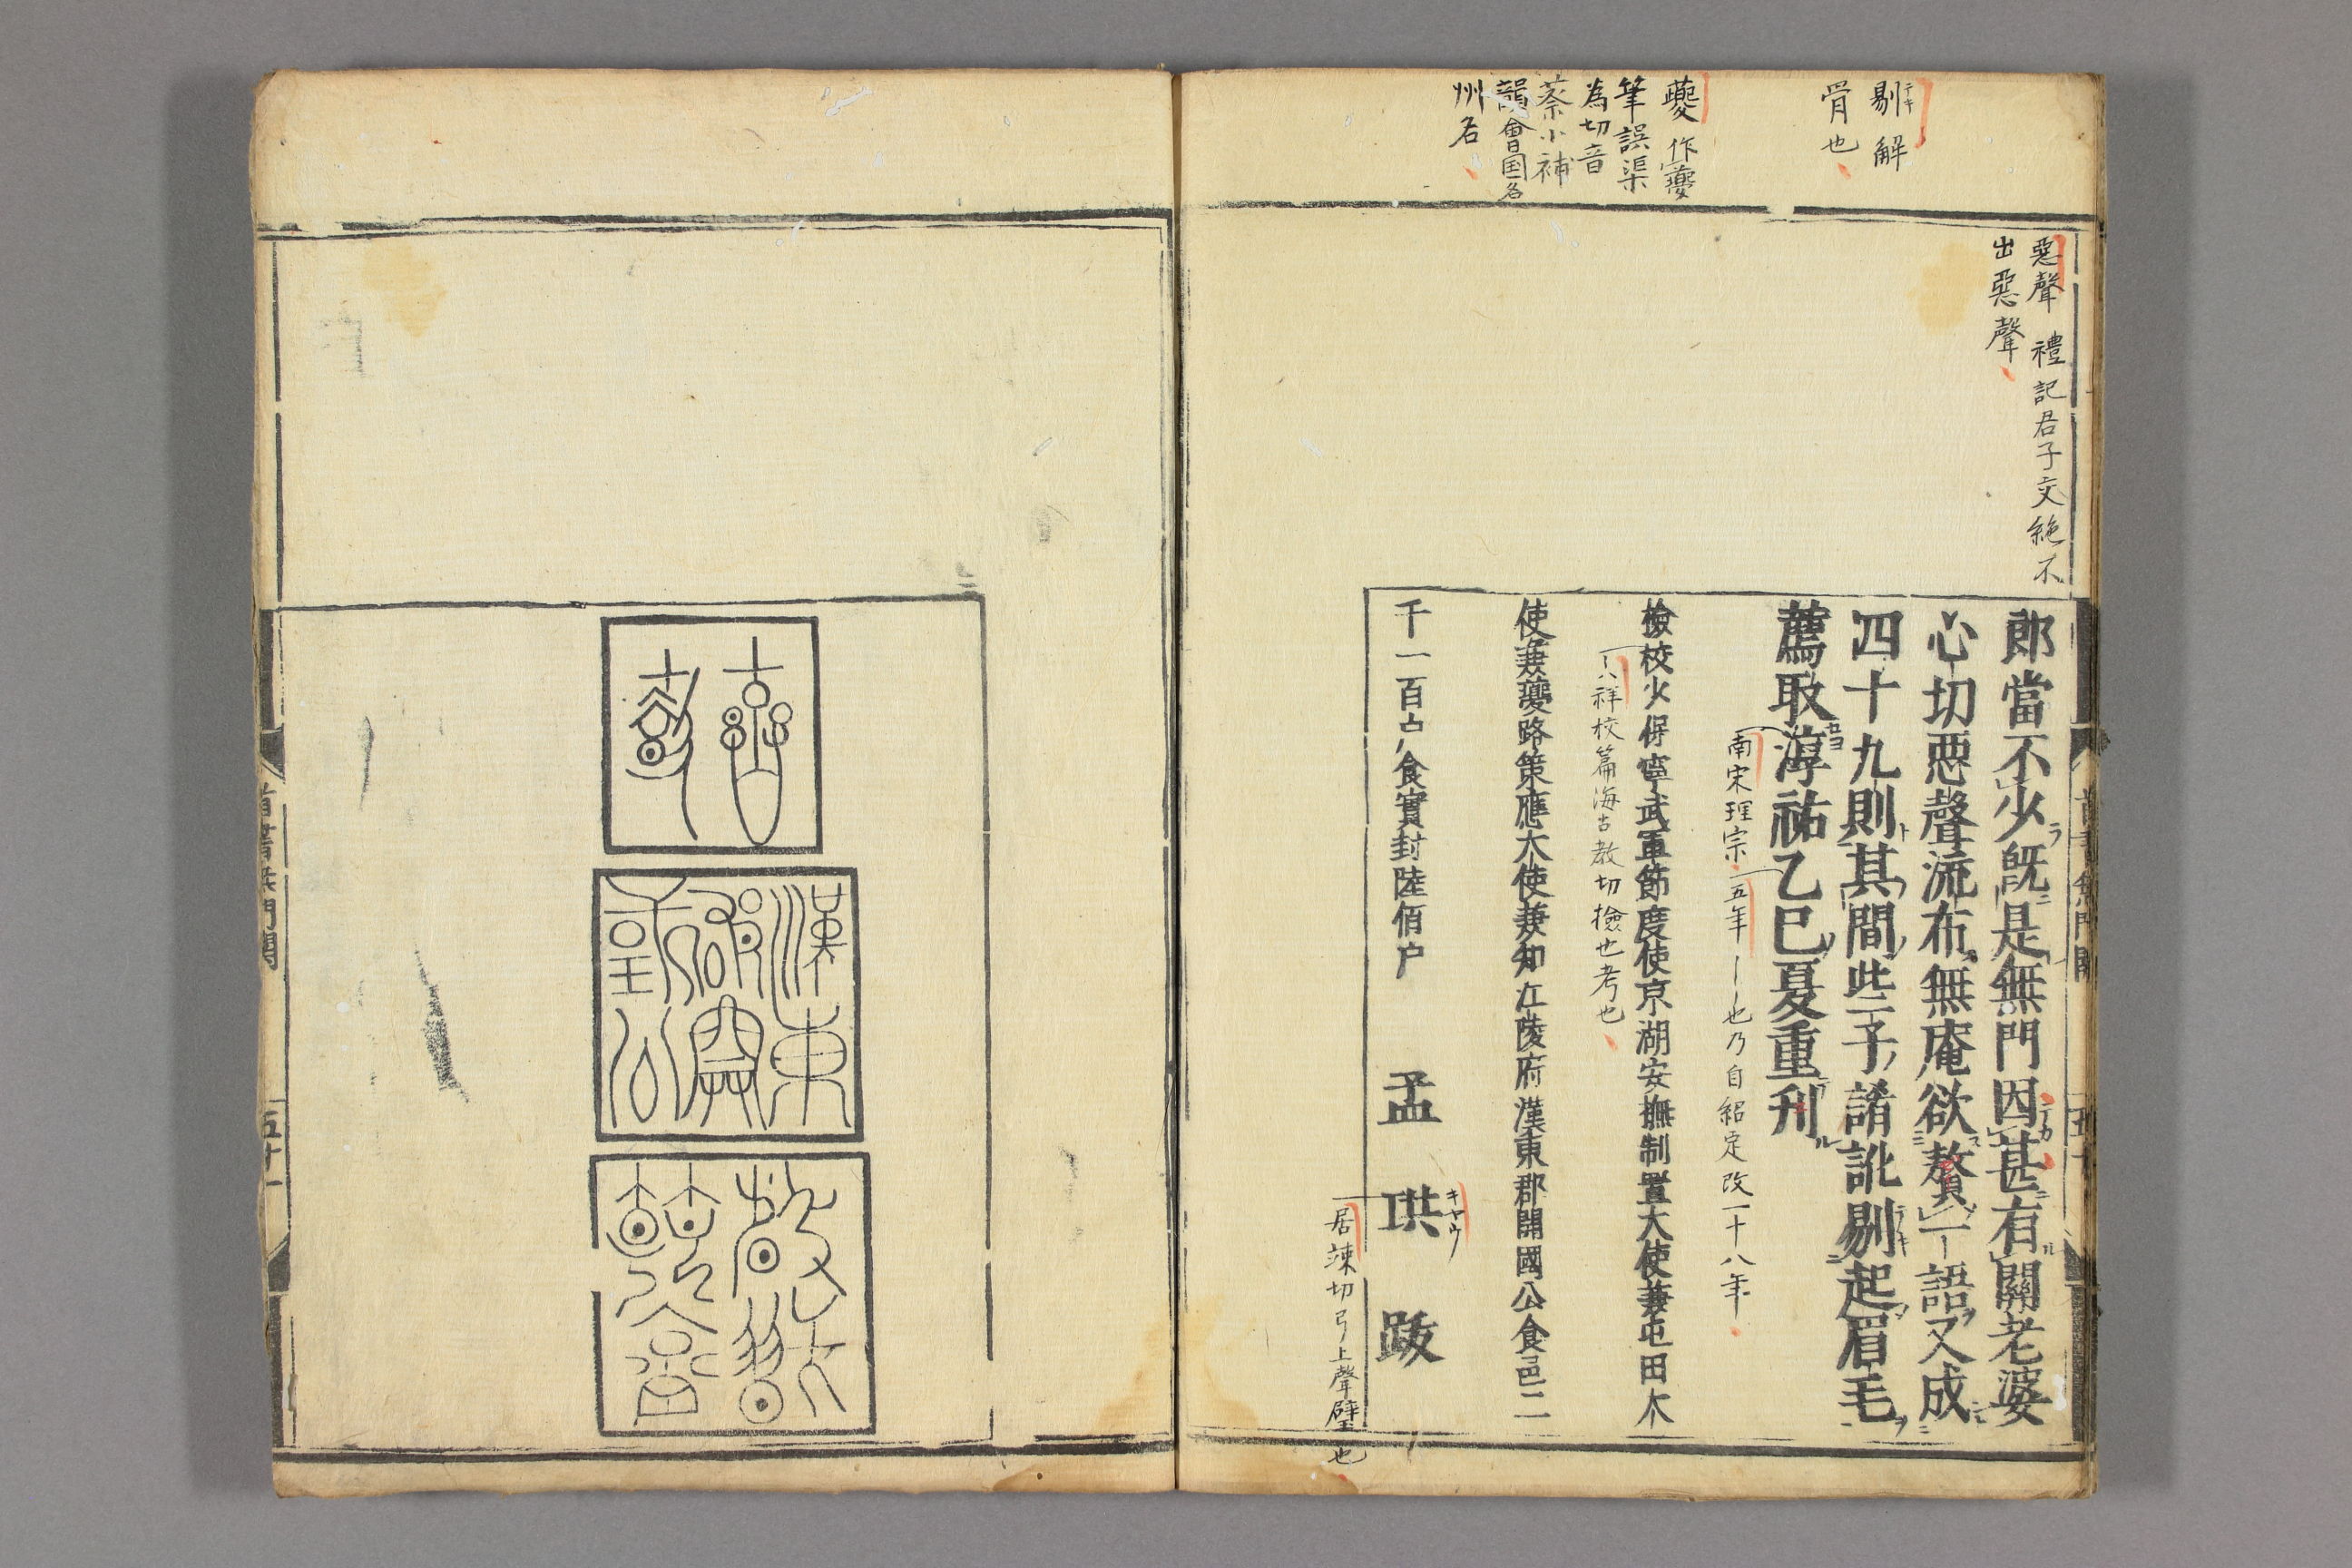 剔解
骨也
夔作夔
筆誤渠
為切音
葵小補
韻會国名
州名
惡聲 禮記君子交絶不
出惡聲
郎當不少既是無門因甚有關老婆
心切惡聲流布無庵欲贅一語又成
四十九則其間些子誵訛剔起眉毛
薦取淳祐乙巳夏重刊
南宋理宗五年ー也乃自紹定改一十八年
檢校少保寧武軍節度使京湖安撫制置大使兼屯田大
ー八祥校篇海古教切撿也考也
使兼夔路策應大使兼知江陵府漢東郡開國公食邑二
千一百户食實封陸佰户
孟珙跋
キヤウ
居竦切弓上聲璧也
首書無門關
五十一
漢東
郡開
國公